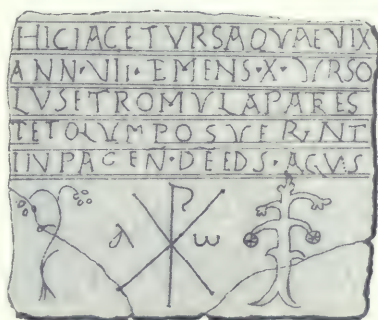 HICIACETVRSAQVAEVIX
ANN·VII·EMENS·X·VRSO
LVSETROMVLAPARES
TETOLVMPOSVERVNT
INPACEN·DEEDS·AGVS
λ ω